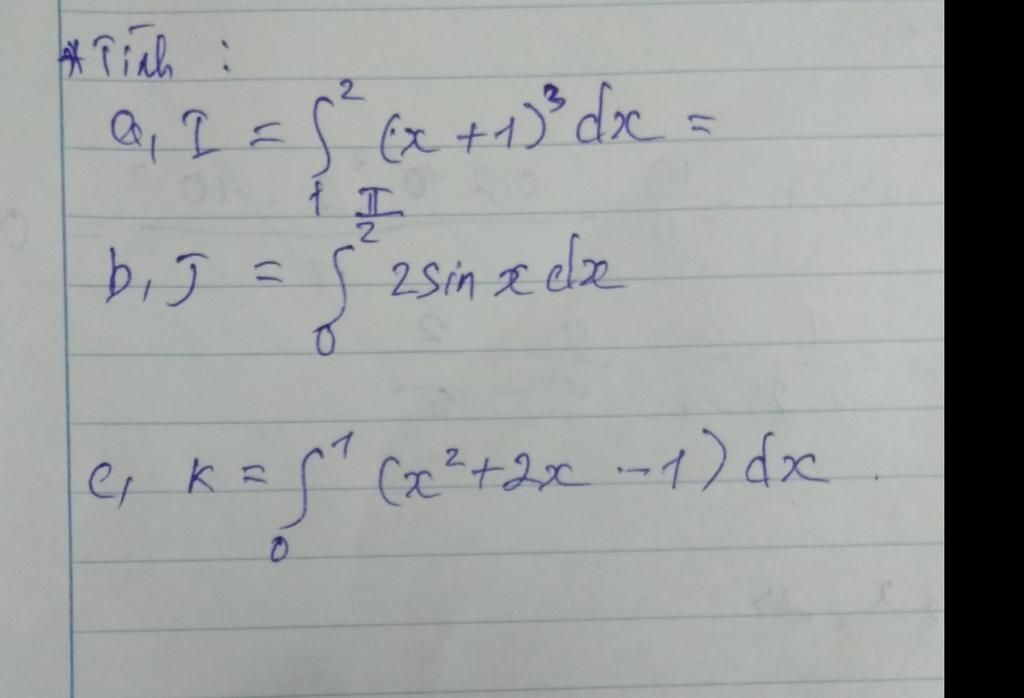 * Tính :
a, I = ∫₁² (x + 1)³ dx =
b, J = ∫₀^(π/2) 2 sin x dx
c, K = ∫₀¹ (x² + 2x - 1) dx .